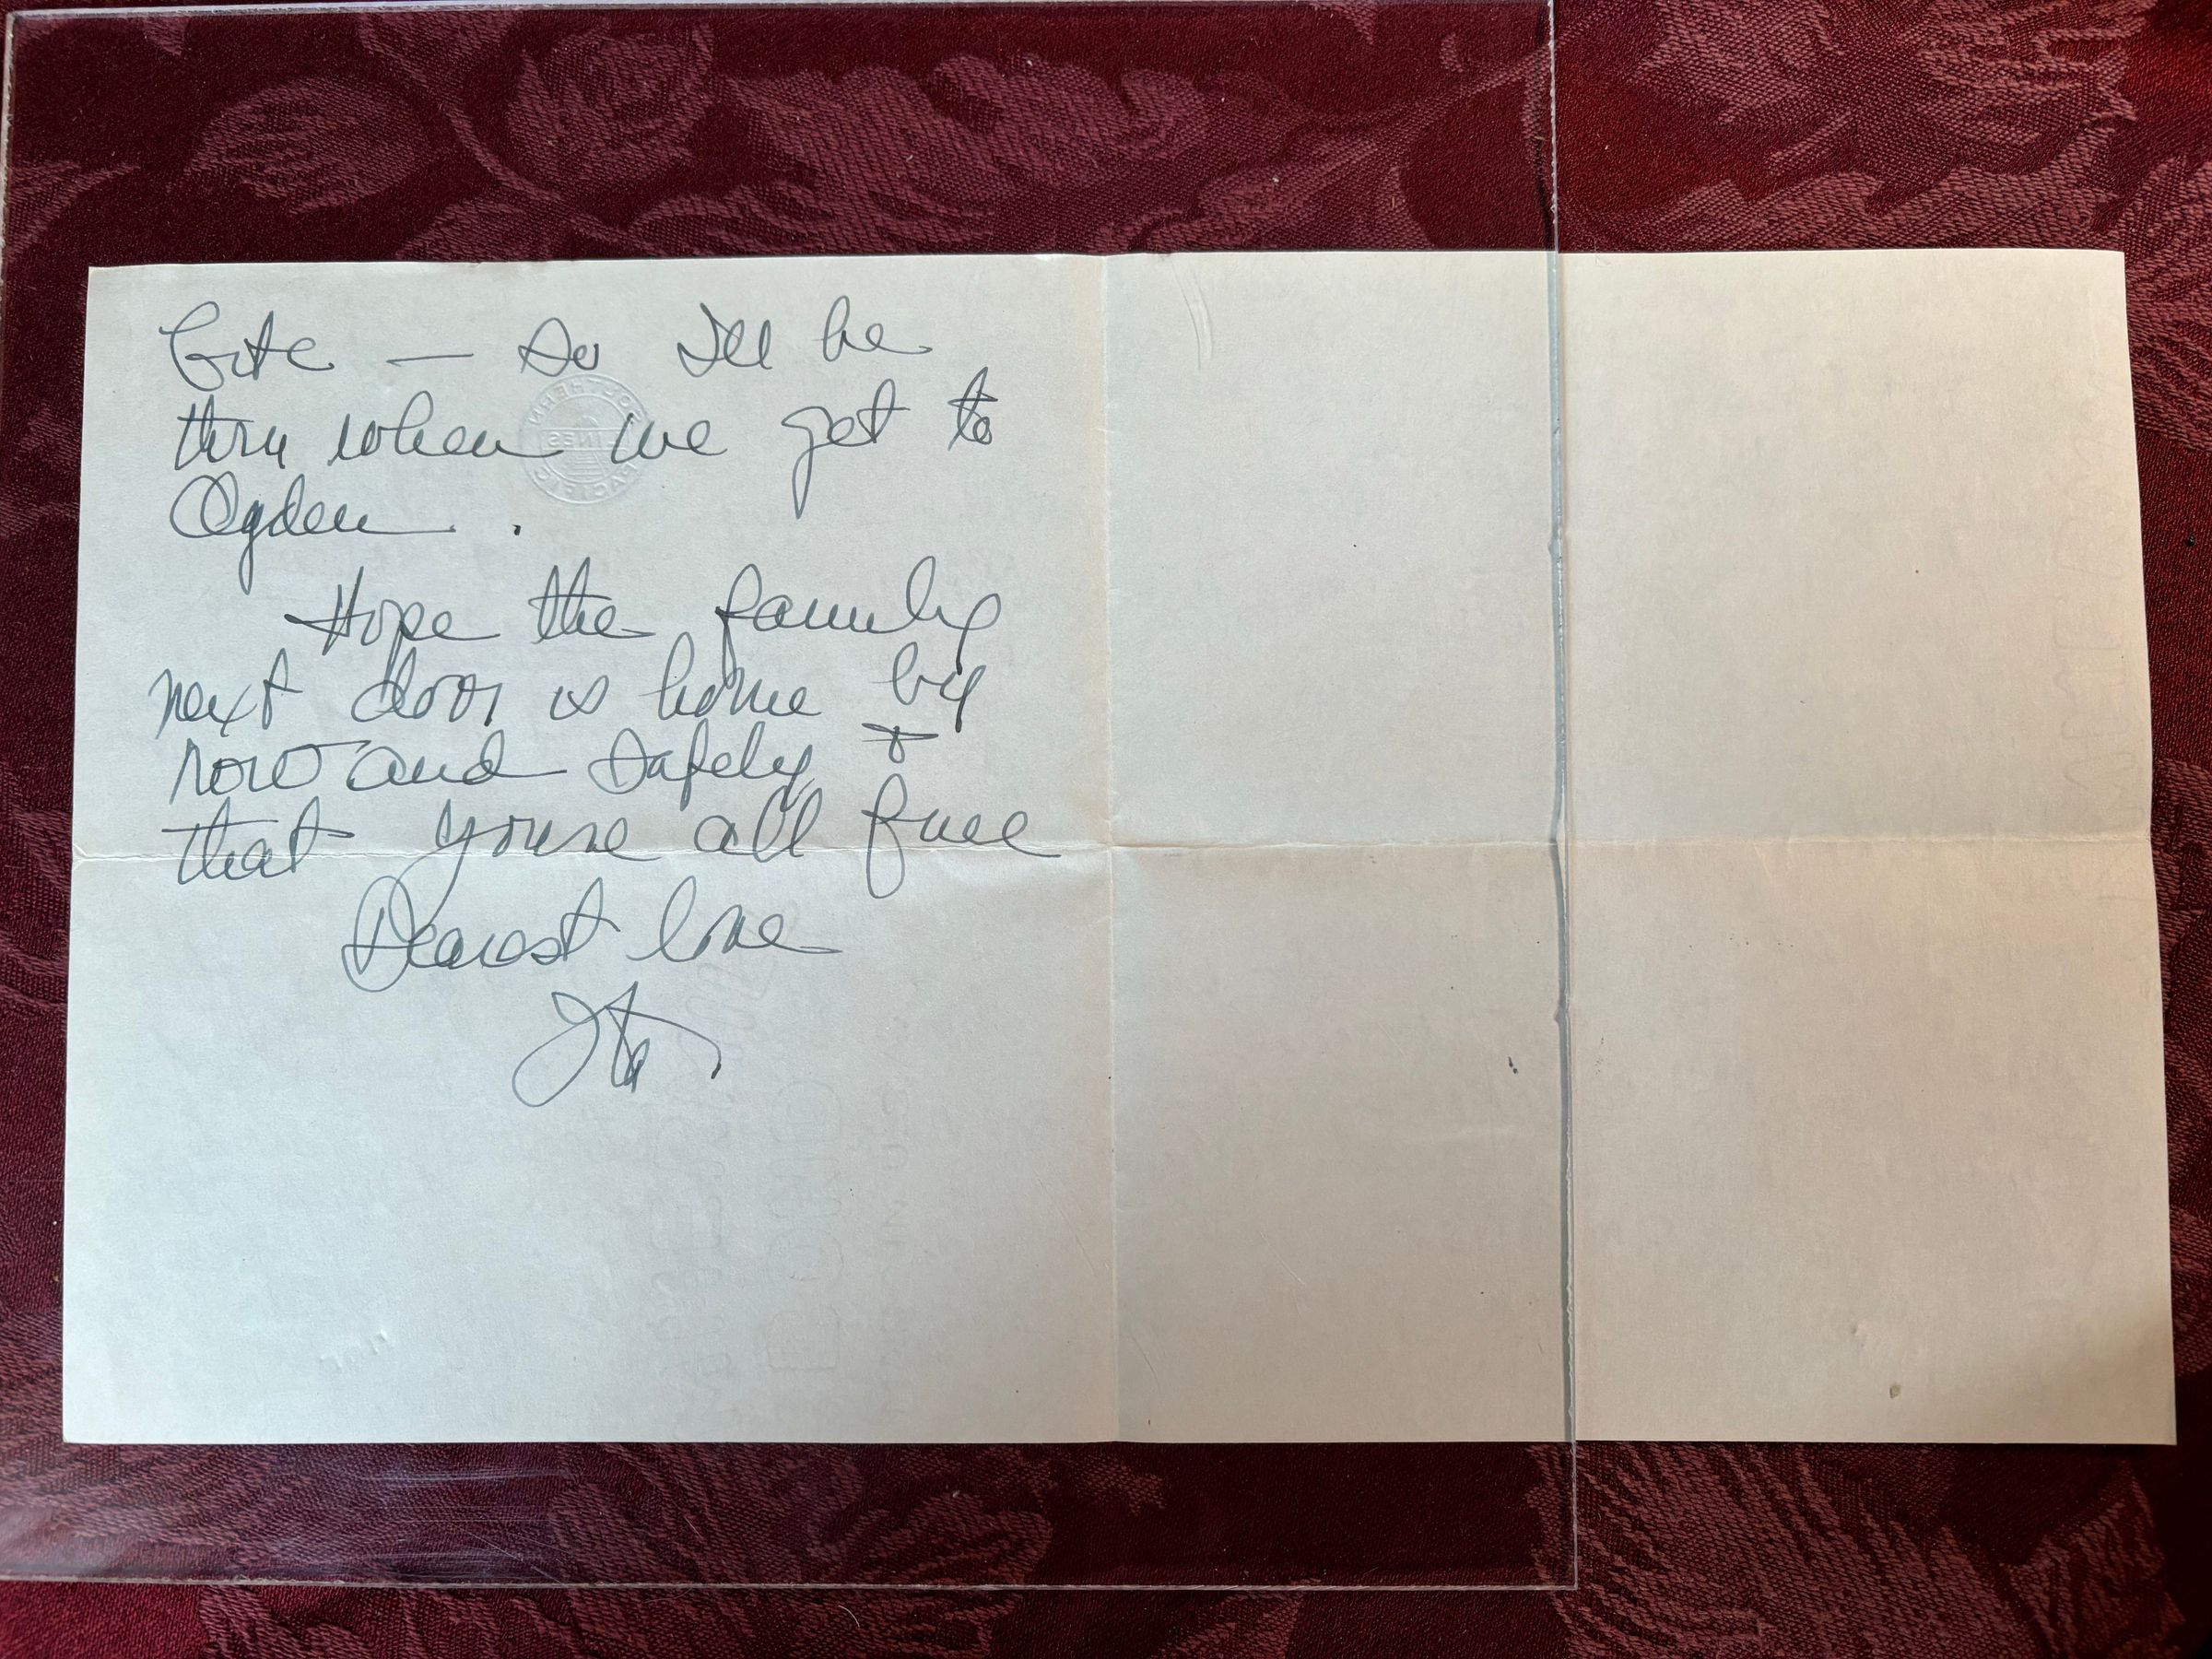 bite — So I'll be
thru when we get to
Ogden.
Hope the family
next door is home by
now and safely &
that you're all fine
Dearest love
SOUTHERN PACIFIC LINES